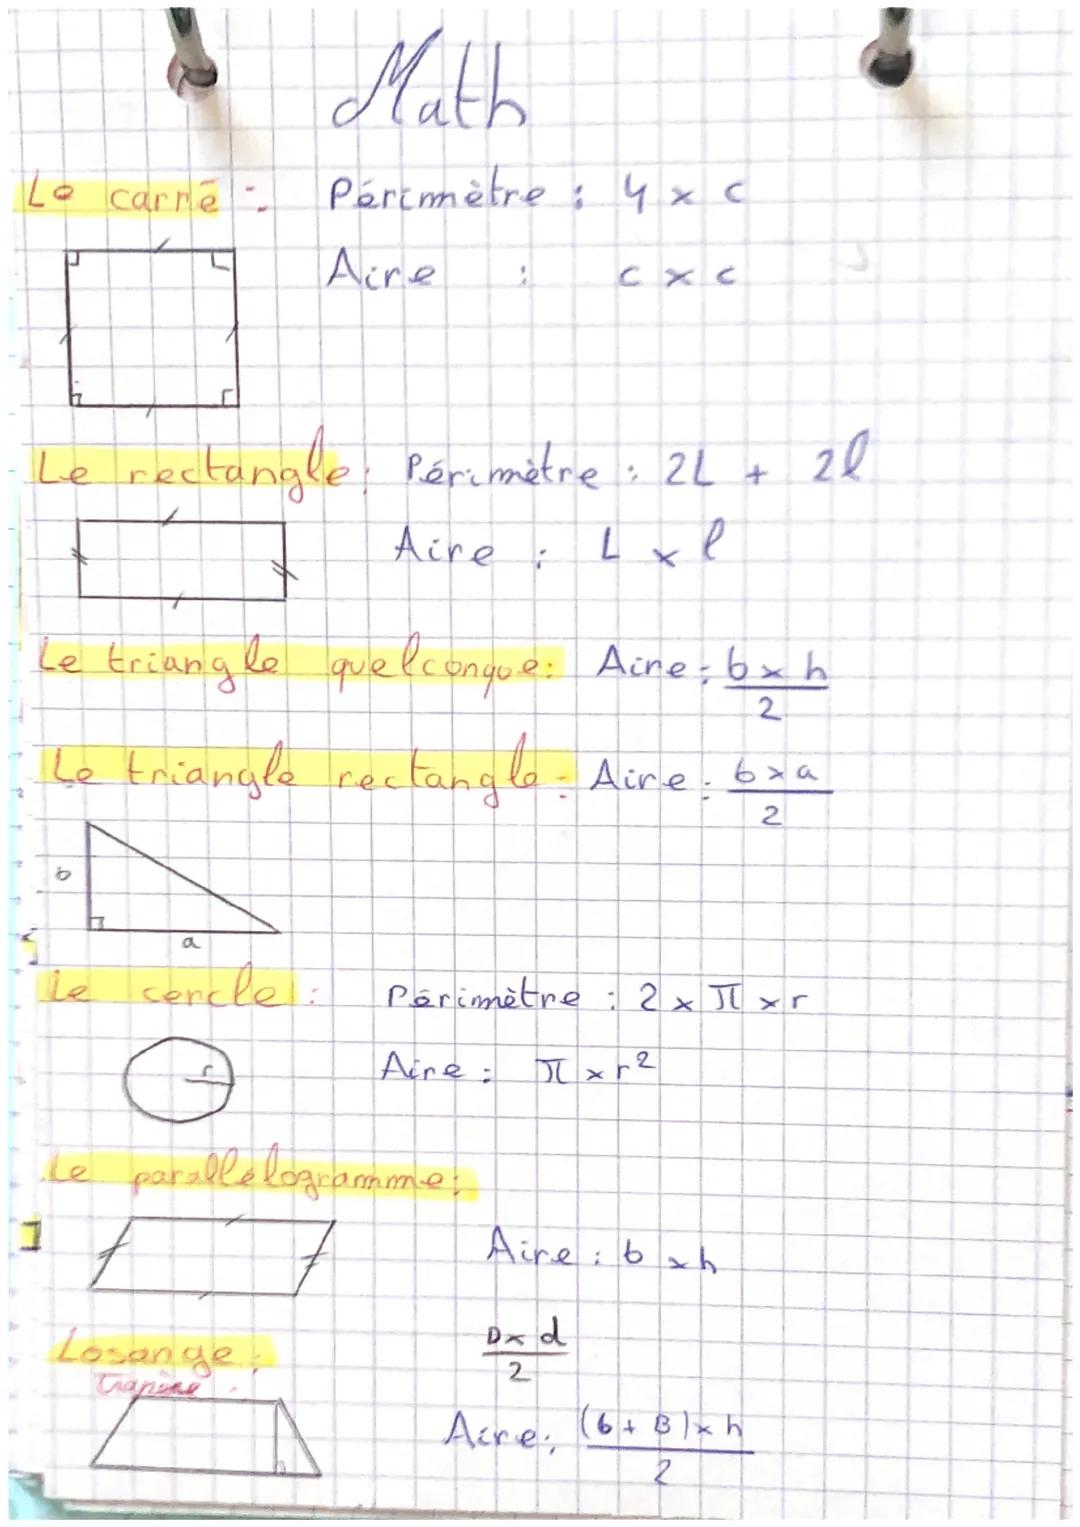 Math
Le carré : Périmètre : 4 x c
Aire : c x c
Le rectangle : Périmètre : 2L + 2l
Aire : L x l
Le triangle quelconque : Aire : b x h / 2
Le triangle rectangle : Aire : b x a / 2
b
a
Le cercle : Périmètre : 2 x π x r
r
Aire : π x r²
Le parallélogramme :
Aire : b x h
Losange : D x d / 2
Trapèze :
Aire : (b + B) x h / 2